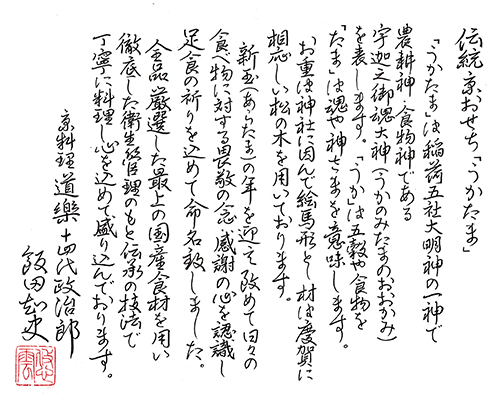 伝統京おせち「うかたま」
「うかたま」は稲荷五社大明神の一神で
農耕神・食物神である
宇迦之御魂大神(うかのみたまのおおかみ)
を表します。「うか」は五穀や食物を
「たま」は魂や神さまを意味します。
お重は神社に因んで絵馬形とし材は慶賀に
相応しい松の木を用いております。
新玉(あらたま)の年を迎え改めて日々の
食べ物に対する畏敬の念、感謝の心を認識し
足食の祈りを込めて命名致しました。
全品厳選した最上の国産食材を用い
徹底した衛生管理のもと伝承の技法で
丁寧に料理し心を込めて盛り込んでおります。
京料理 道樂 十四代政治郎
飯田知史